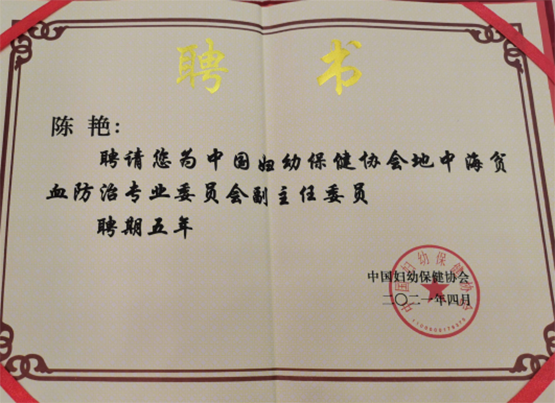 聘书
陈艳:
聘请您为中国妇幼保健协会地中海贫
血防治专业委员会副主任委员
聘期五年
中国妇幼保健协会
二〇二一年四月
中国妇幼保健协会